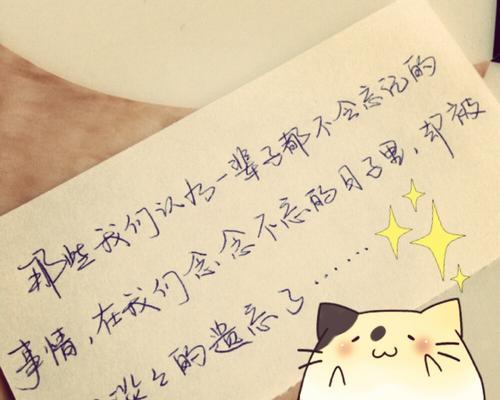 那些我们认为一辈子都不会忘记的
事情,在我们念念不忘的日子里,却被
淡淡的遗忘了……